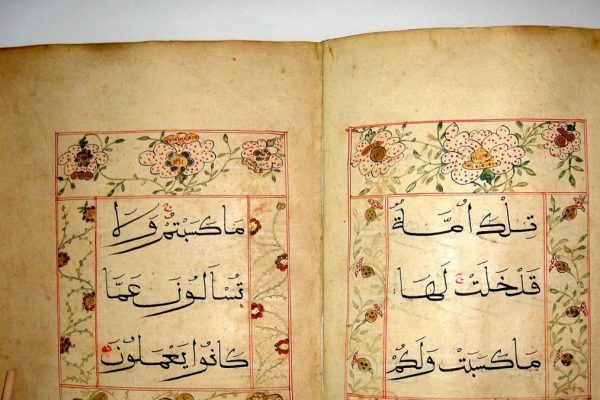 تِلْكَ اُمَّةٌ
قَدْ خَلَتْ ۚ لَهَا
مَا كَسَبَتْ وَلَكُمْ
مَا كَسَبْتُمْ ۚ وَلَا
تُسْالُونَ عَمَّا
كَانُوا يَعْمَلُونَ